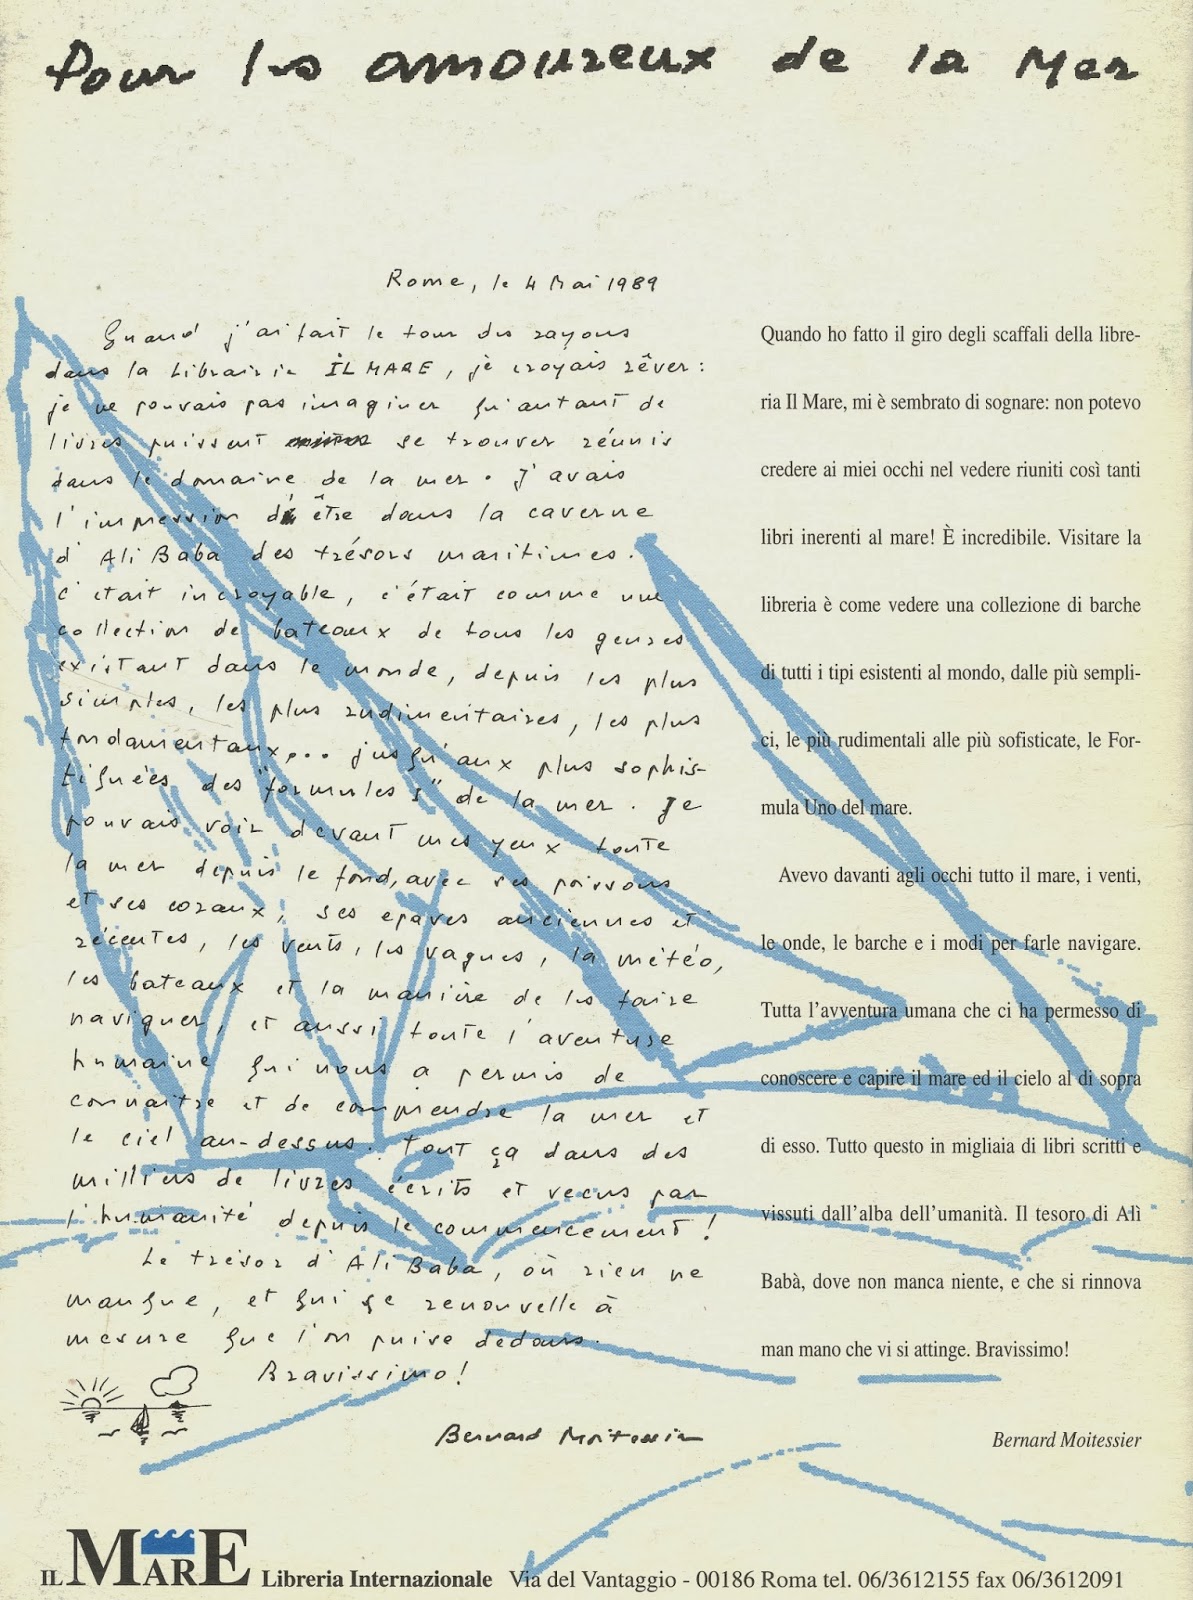 Pour les amoureux de la Mer
Rome, le 4 Mai 1989
Quand j'ai fait le tour des rayons
dans la Librairie IL MARE, je croyais rêver :
je ne pouvais pas imaginer qu'autant de
livres puissent se trouver réunis
dans le domaine de la mer. J'avais
l'impression d'être dans la caverne
d'Ali Baba des trésors maritimes.
C'était incroyable, c'était comme une
collection de bateaux de tous les genres
existant dans le monde, depuis les plus
simples, les plus rudimentaires, les plus
fondamentaux... jusqu'aux plus sophis-
tiquées des "formules 1" de la mer. Je
pouvais voir devant mes yeux toute
la mer depuis le fond, avec ses poissons
et ses coraux, ses epaves anciennes et
récentes, les vents, les vagues, la météo,
les bateaux et la manière de les faire
naviguer, et aussi toute l'aventure
humaine qui nous a permis de
connaître et de comprendre la mer et
le ciel au-dessus. Tout ça dans des
milliers de livres écrits et vecus par
l'humanité depuis le commencement !
Le trésor d'Ali Baba, où rien ne
manque, et qui se renouvelle à
mesure que l'on puise dedans.
Bravissimo !
Bernard Moitessier
Quando ho fatto il giro degli scaffali della libre-
ria Il Mare, mi è sembrato di sognare: non potevo
credere ai miei occhi nel vedere riuniti così tanti
libri inerenti al mare! È incredibile. Visitare la
libreria è come vedere una collezione di barche
di tutti i tipi esistenti al mondo, dalle più sempli-
ci, le più rudimentali alle più sofisticate, le For-
mula Uno del mare.
Avevo davanti agli occhi tutto il mare, i venti,
le onde, le barche e i modi per farle navigare.
Tutta l'avventura umana che ci ha permesso di
conoscere e capire il mare ed il cielo al di sopra
di esso. Tutto questo in migliaia di libri scritti e
vissuti dall'alba dell'umanità. Il tesoro di Alì
Babà, dove non manca niente, e che si rinnova
man mano che vi si attinge. Bravissimo!
Bernard Moitessier
IL MARE Libreria Internazionale Via del Vantaggio - 00186 Roma tel. 06/3612155 fax 06/3612091